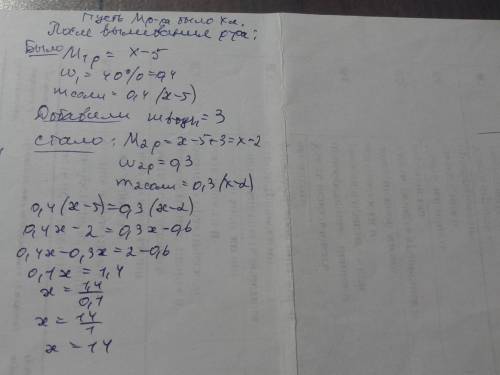 Пусть Мр-ра было х л.
После выливания р-ра:
Было M₁р = x-5
w₁ = 40% = 0,4
m соли = 0,4(x-5)
Добавили m воды = 3
стало: M₂р = x-5+3=x-2
w₂р = 0,3
m₂соли = 0,3(x-2)
0,4(x-5)=0,3(x-2)
0,4x-2=0,3x-0,6
0,4x-0,3x=2-0,6
0,1x=1,4
x = 1,4/0,1
x = 14/1
x = 14